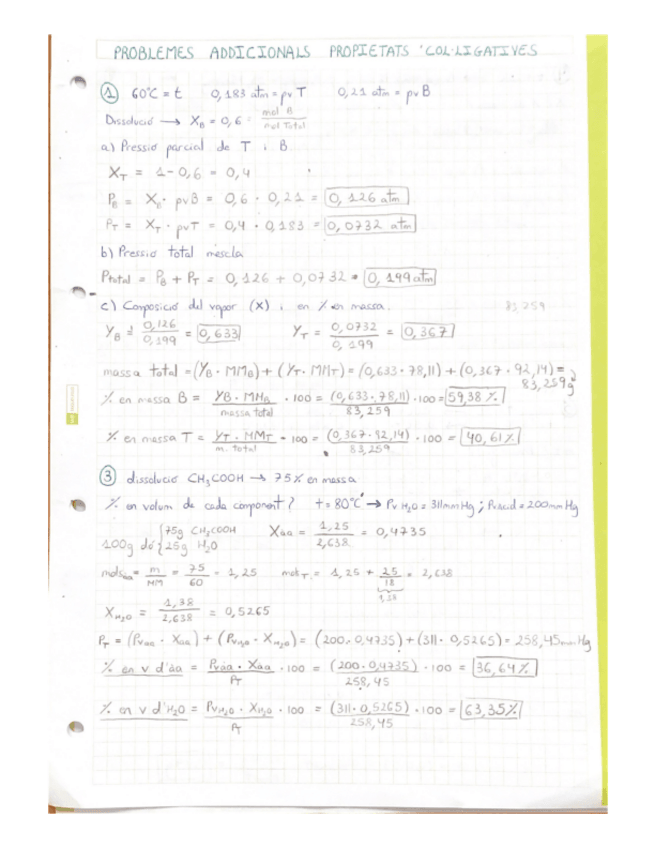 PROBLEMES ADDICIONALS PROPIETATS COL·LIGATIVES
① 60°C = t 0,183 atm = pv T 0,21 atm = pv B
Dissolució → X_B = 0,6 = mol B / mol Total
a) Pressió parcial de T i B
X_T = 1 - 0,6 = 0,4
P_B = X_B · pvB = 0,6 · 0,21 = 0,126 atm
P_T = X_T · pvT = 0,4 · 0,183 = 0,0732 atm
b) Pressió total mescla
Ptotal = P_B + P_T = 0,126 + 0,0732 = 0,199 atm
c) Composició del vapor (X) i en % en massa.
Y_B = 0,126 / 0,199 = 0,633 Y_T = 0,0732 / 0,199 = 0,367
massa total = (Y_B · MM_B) + (Y_T · MM_T) = (0,633 · 78,11) + (0,367 · 92,14) =
83,259g
% en massa B = Y_B · MM_B / massa total · 100 = (0,633 · 78,11) / 83,259 · 100 = 59,38 %
% en massa T = Y_T · MM_T / m. total · 100 = (0,367 · 92,14) / 83,259 · 100 = 40,61%
③ dissolució CH₃COOH → 75% en massa
% en volum de cada component? t = 80°C → Pv H₂O = 311mmHg ; Pvàcid = 200mmHg
100g dó { 75g CH₃COOH 25g H₂O Xàa = 1,25 / 2,638 = 0,4735
molsàa = m / MM = 75 / 60 = 1,25 mols_T = 1,25 + 25 / 18 = 2,638
1,38
X_H₂O = 1,38 / 2,638 = 0,5265
P_T = (Pvàa · Xàa) + (Pv_H₂O · X_H₂O) = (200 · 0,4735) + (311 · 0,5265) = 258,45mmHg
% en v d'àa = Pvàa · Xàa / P_T · 100 = (200 · 0,4735) / 258,45 · 100 = 36,64%
% en v d'H₂O = Pv_H₂O · X_H₂O / P_T · 100 = (311 · 0,5265) / 258,45 · 100 = 63,35%